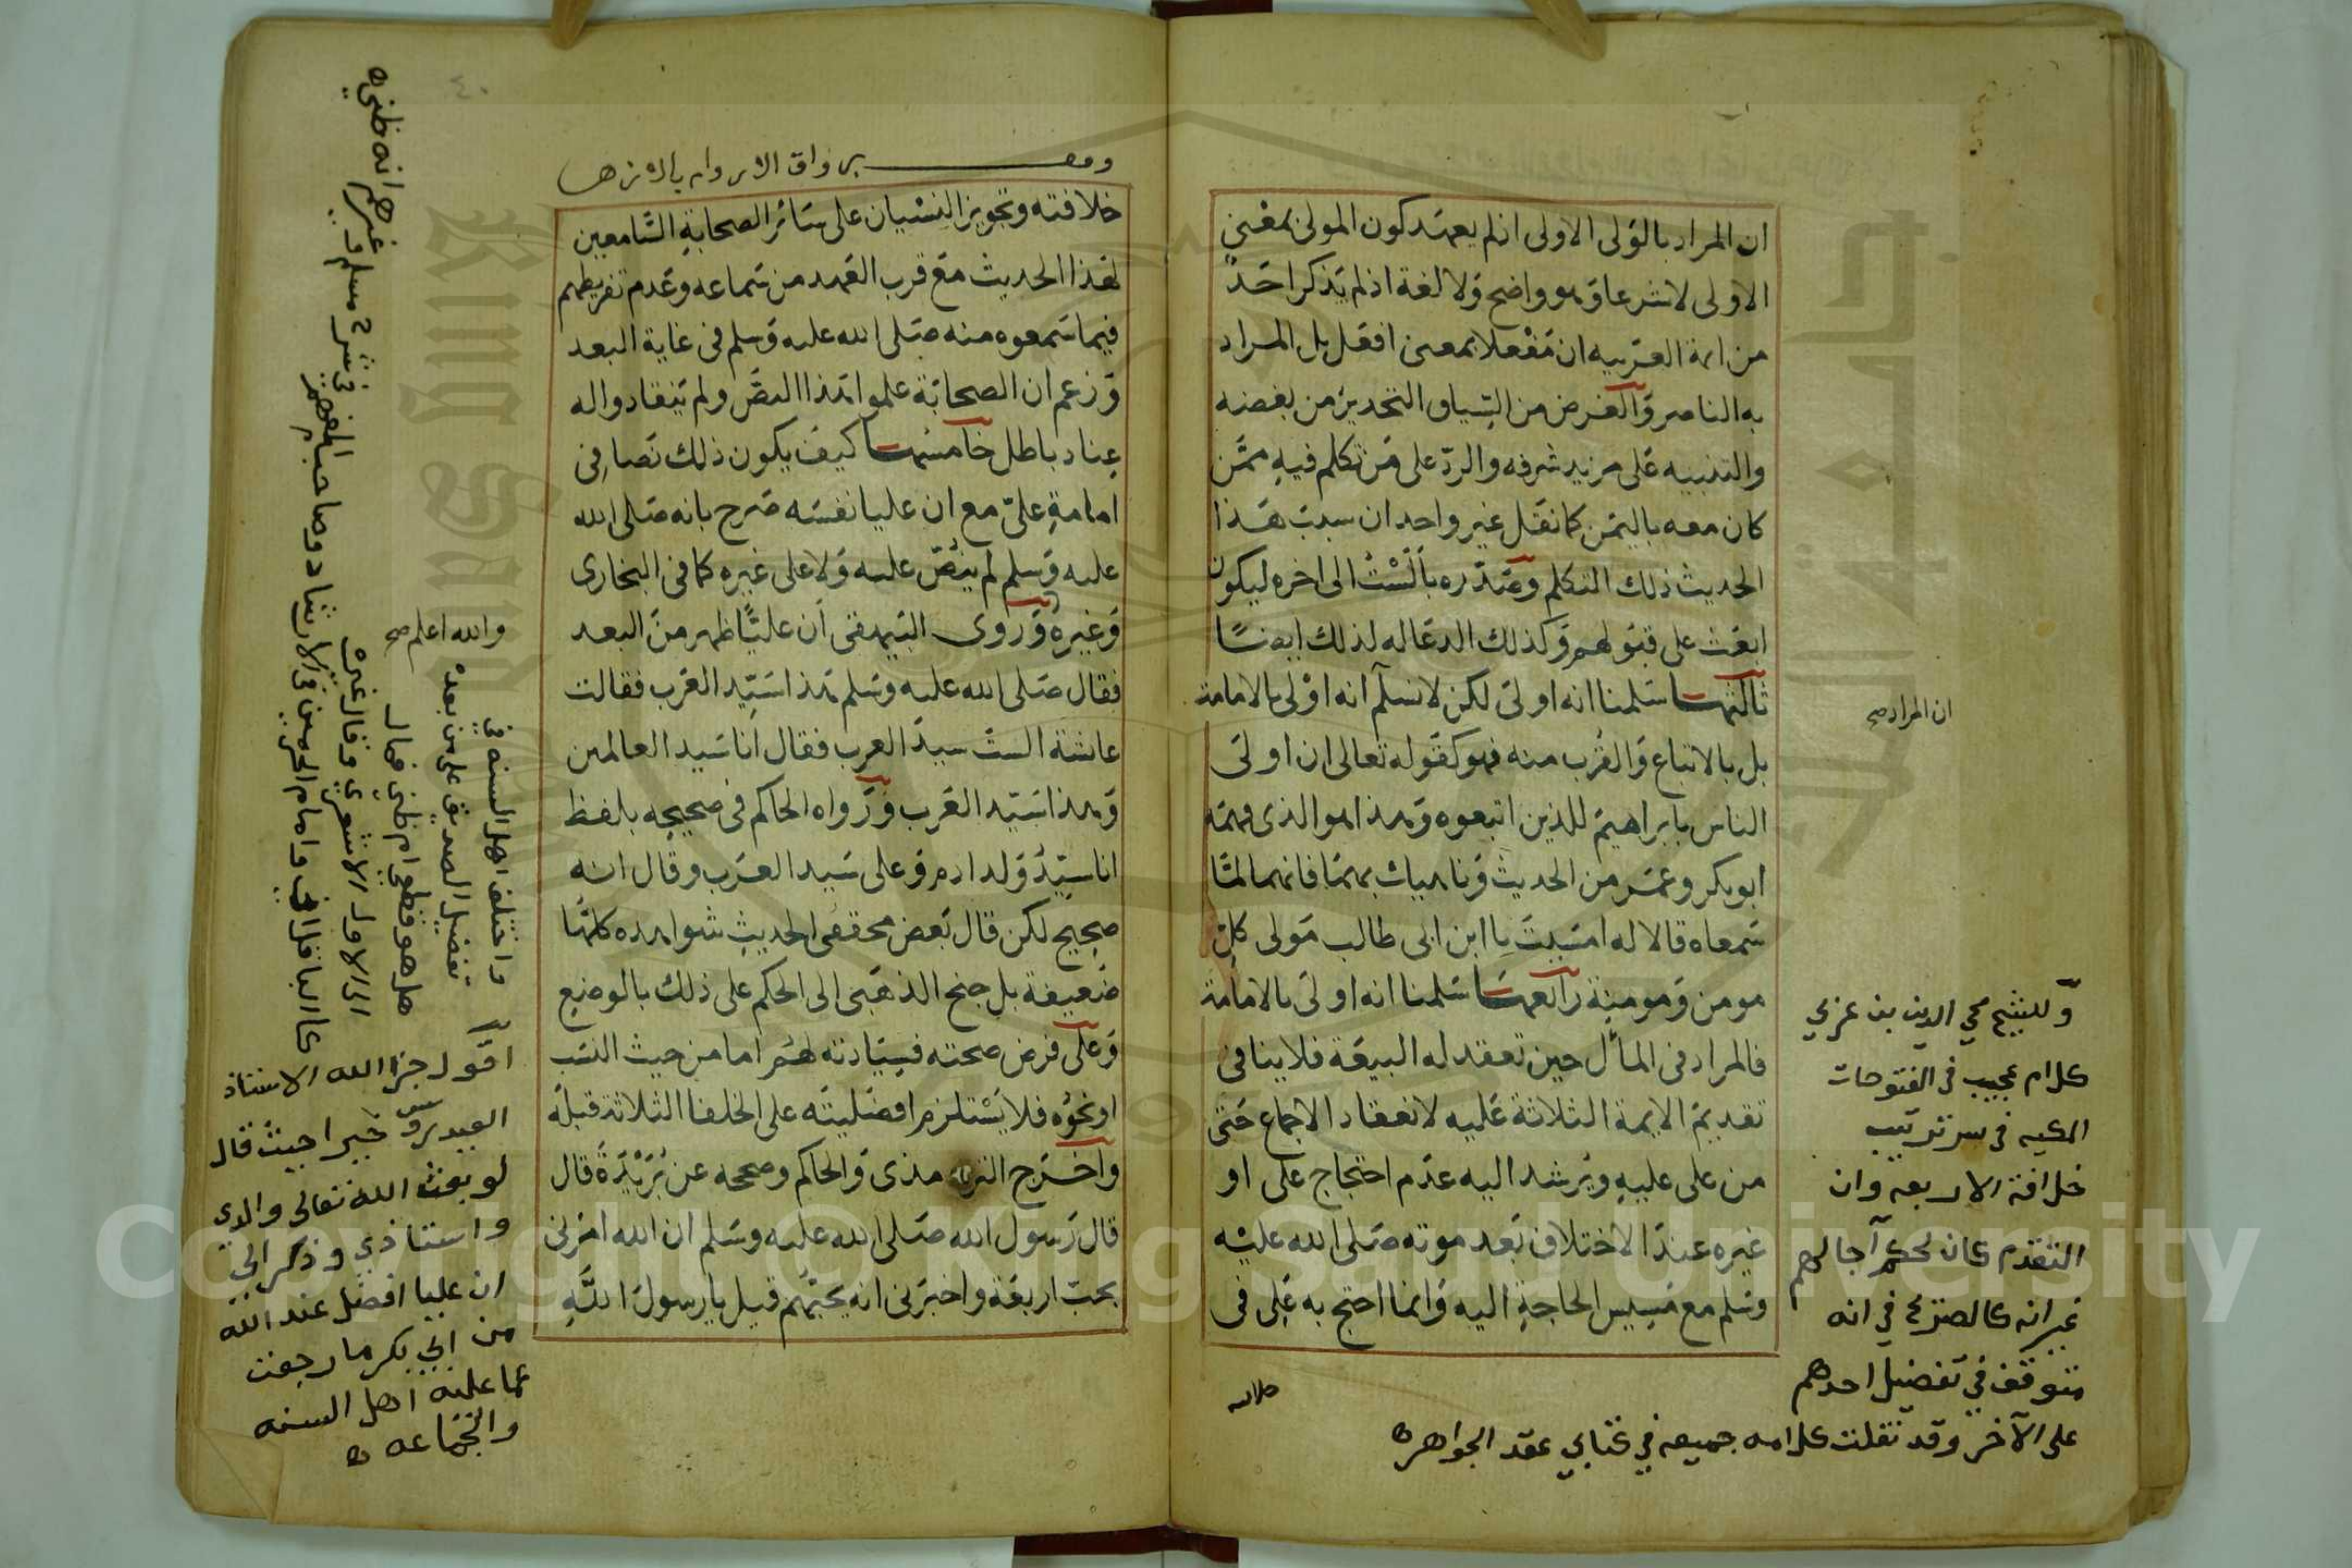 ان المراد بالولى الاولى اذ لم يعهد كون المولى بمعنى
الاولى لا شرعا وهو واضح ولا لغة اذ لم يذكر احد
من ائمة العربيه ان مفعلا بمعنى افعل بل المراد
به الناصر والغرض من السياق التحذير من بغضه
والتنبيه على مزيد شرفه والرد على من تكلم فيه ممن
كان معه باليمن كما نقل غير واحد ان سبب هذا
الحديث ذلك التكلم وصدره بألست الى اخره ليكون
ابعث على قبولهم وكذلك الدعا له لذلك ايضا
ثالثها سلمنا انه اولى لكن لا نسلم انه اولى بالامامة
بل بالاتباع والقرب منه فهو كقوله تعالى ان اولى
الناس بابراهيم للذين اتبعوه وهذا هو الذى فهمه
ابو بكر وعمر من الحديث وناهيك بهما فانهما لما
سمعاه قالا له امسيت يا ابن ابى طالب مولى كل
مومن ومومنة رابعها سلمنا انه اولى بالامامة
فالمراد فى المأل حين تعقد له البيعة فلا ينافى
تقديم الايمة الثلاثة عليه لانعقاد الاجماع حتى
من على عليه ويرشد اليه عدم احتجاج على او
غيره عند الاختلاف بعد موته صلى الله عليه
وسلم مع مسيس الحاجة اليه وانما احتج به على فى
ان المراد صح
وللشيخ محي الدين بن عربي
كلام عجيب في الفتوحات
المكيه في سر ترتيب
خلافة الاربعه وان
التقدم كان لحكم آجالهم
غير انه كالصنرى في انه
متوقف في تفضيل احدهم
على الآخر وقد نقلت كلامه جميعه في كتابي عقد الجواهر
خلافته
برواق الاروام بالازهر
خلافته وتجويز النسيان على سائر الصحابة السامعين
لهذا الحديث مع قرب العهد من سماعه وعدم تفريطهم
فيما سمعوه منه صلى الله عليه وسلم فى غاية البعد
وزعم ان الصحابة علموا هذا النص ولم ينقادوا له
عناد باطل خامسها كيف يكون ذلك نصا فى
امامة على مع ان عليا نفسه صرح بانه صلى الله
عليه وسلم لم ينص عليه ولا على غيره كما فى البخارى
وغيره وروى البيهقى أن عليا ظهر من البعد
فقال صلى الله عليه وسلم هذا سيد العرب فقالت
عائشة الست سيد العرب فقال أنا سيد العالمين
وهذا سيد العرب ورواه الحاكم فى صحيحه بلفظ
انا سيد ولد ادم وعلى سيد العرب وقال انه
صحيح لكن قال بعض محققى الحديث شواهده كلها
ضعيفة بل جنح الذهبى الى الحكم على ذلك بالوضع
وعلى فرض صحته فسيادته لهم اما من حيث النسب
او نحوه فلا يستلزم افضليته على الخلفا الثلاثة قبله
واخرج الترمذى والحاكم وصححه عن بريدة قال
قال رسول الله صلى الله عليه وسلم ان الله امرنى
بحب اربعة واخبرنى انه يحبهم قيل يا رسول الله
واختلف اهل السنه في
تفضيل الصديق على من بعده
هل هو قطعي ام ظني فمال
الى الاول الاشعري وقال غيره
كالباقلاني وامام الحرمين في الارشاد وصاحب المفهم
في شرح مسلم وغيرهم انه ظني
والله اعلم صح
اقول جزا الله الاستاذ
العيدروس خيرا حيث قال
لو بعث الله تعالى والدي
واستاذي وذكر الي
ان عليا افضل عند الله
من ابي بكر ما رجعت
عما عليه اهل السنه
والجماعه